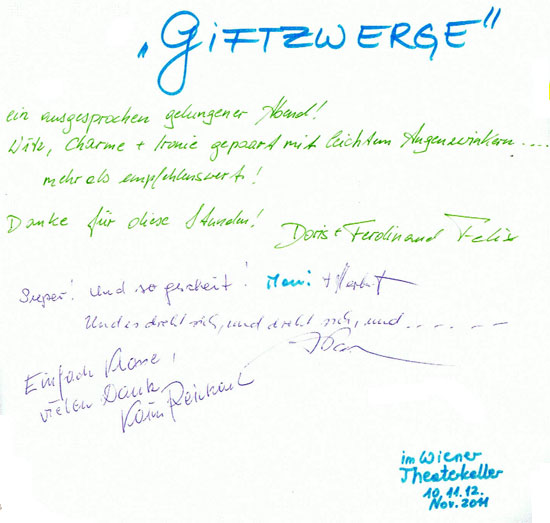 „GIFTZWERGE"
ein ausgesprochen gelungener Abend!
Witz, Charme + Ironie gepaart mit leichtem Augenzwinkern....
mehr als empfehlenswert!
Danke für diese Stunden! Doris + Ferdinand Felix
Super! Und so gescheit! + Herbert
Und es dreht sich, und dreht sich, und.....
Einfach Klasse,
vielen Dank
im Wiener
Theaterkeller
10.11.12.
Nov. 2011